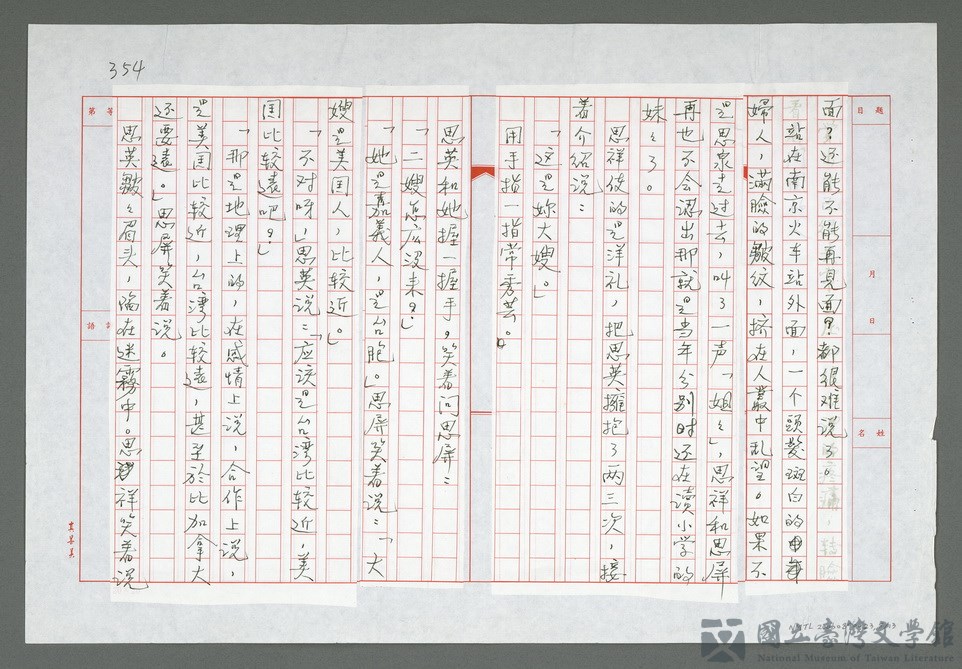 354
題目
月 日
姓名
第 等
面？还能不能再见面？都很难说了。
站在南京火车站外面，一个頭髮斑白的中年
婦人，滿臉的皺紋，擠在人叢中乱望。如果不
是思泉走过去，叫了一声「姐々」，思祥和思屏
再也不会認出那就是当年分别时还在讀小学的
妹々了。
思祥使的是洋礼，把思英擁抱了两三次，接
着介绍说：
「这是妳大嫂。」
用手指一指常秀芸。
思英和她握一握手，笑着问思屏：
「二嫂怎広没来？」
「她是嘉義人，是台胞。」思屏笑着说：「大
嫂是美国人，比较近。」
「不对呀，」思英说：「应该是台湾比较近，美
国比较遠吧？」
「那是地理上的，在感情上说，合作上说，
是美国比较近，台湾比较遠，甚至於比加拿大
还要遠。」思屏笑着说。
思英皺々眉头，陷在迷霧中。思祥笑着说
國立臺灣文學館
National Museum of Taiwan Literature